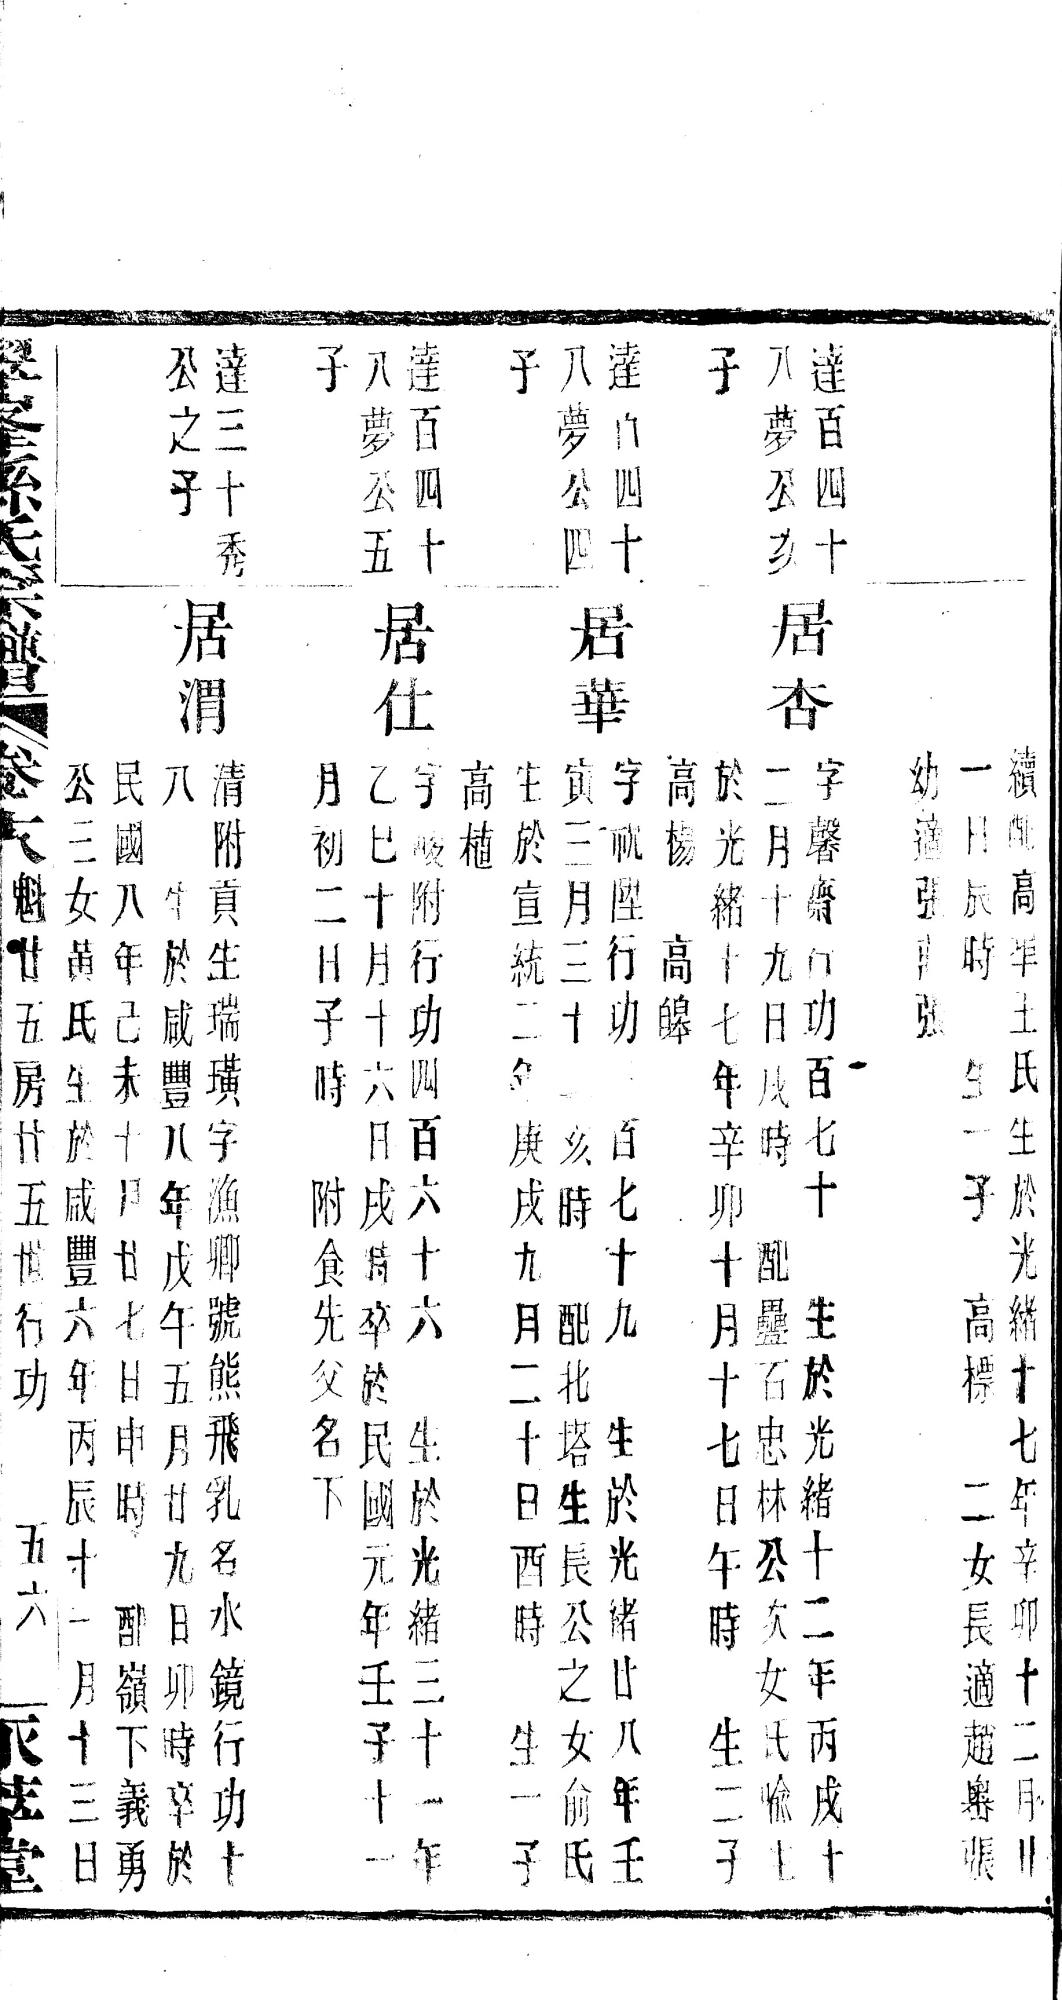 續配高準王氏生於光緒十七年辛卯十二月廿
一日辰時 生一子 高標 二女長適趙嶴張
幼適張 張
達百四十
八夢公亥
子
居杏
字馨齋行功百七十 生於光緒十二年丙戌十
二月十九日戌時 配疊石忠林公次女氏喻生
於光緒十七年辛卯十月十七日午時 生二子
高楊 高皞
達百四十
八夢公四
子
居華
字祝陞行功 百七十九 生於光緒廿八年壬
寅三月三十 亥時 配北塔生長公之女俞氏
生於宣統二年庚戌九月二十日酉時 生一子
高植
達百四十
八夢公五
子
居仕
字 附行功四百六十六 生於光緒三十一年
乙巳十月十六日戌時卒於民國元年壬子十一
月初二日子時 附食先父名下
達三十秀
公之子
居渭
清附貢生瑞璜字漁卿號熊飛乳名水鏡行功十
八 生於咸豐八年戊午五月廿九日卯時卒於
民國八年己未十月廿七日申時 配嶺下義勇
公三女黃氏生於咸豐六年丙辰十一月十三日
峯孫氏宗譜 卷 魁廿五房廿五世行功 五六 堂